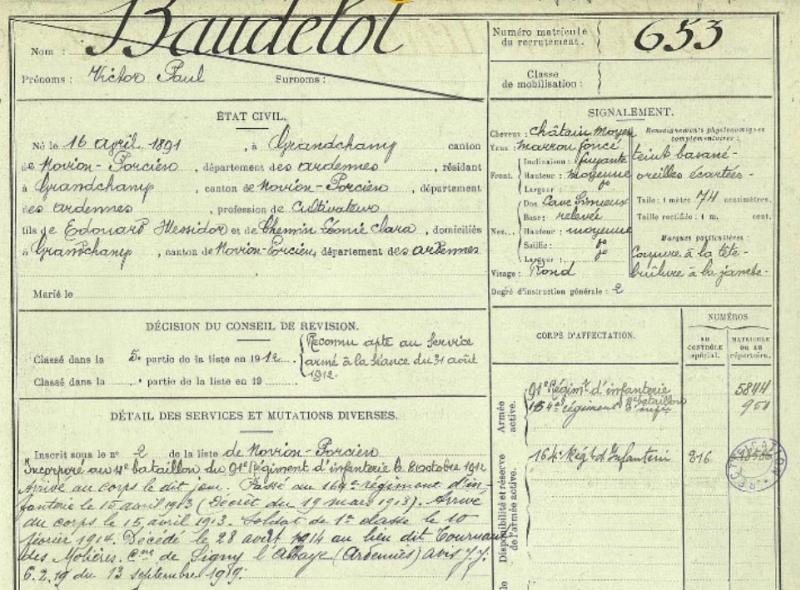 Nom : Baudelot
Prénoms : Victor Paul Surnoms :
Numéro matricule du recrutement. 653
Classe de mobilisation :
ÉTAT CIVIL.
Né le 16 avril 1891, à Grandchamp canton
de Novion-Porcien, département des ardennes, résidant
à Grandchamp, canton de Novion-Porcien, département
des ardennes, profession de Cultivateur
fils de Edouard Messidor et de Chemin Léonie Clara, domiciliés
à Grandchamp, canton de Novion-Porcien, département des ardennes
Marié le
SIGNALEMENT.
Cheveux : châtain moyen
Yeux : marron foncé
Front. Inclinaison : fuyante
Hauteur : moyenne
Largeur : do
Nez. Dos Cave Sinueux
Base : relevée
Hauteur : moyenne
Saillie : do
Largeur : do
Visage : Rond
Degré d'instruction générale : 2
Renseignements physionomiques complémentaires :
teint basané
oreilles écartées
Taille : 1 mètre 74 centimètres.
Taille rectifiée : 1 m. cent.
Marques particulières
Coupure à la tête
brûlure à la jambe
DÉCISION DU CONSEIL DE REVISION.
Classé dans la 5e partie de la liste en 1912
Classé dans la partie de la liste en 19
Reconnu apte au Service
armé à la séance du 31 août
1912.
DÉTAIL DES SERVICES ET MUTATIONS DIVERSES.
Inscrit sous le n° 2 de la liste de Novion-Porcien
Incorporé au 4e bataillon du 91e Régiment d'infanterie le 8 octobre 1912
Arrivé au corps le dit jour. Passé au 164e régiment d'in-
fanterie le 15 avril 1913 (Décret du 19 mars 1913). Arrivé
au corps le 15 avril 1913. Soldat de 1e classe le 10
février 1914. Décédé le 28 août 1914 au lieu dit
des Molières. Cne de Signy l'Abbaye (Ardennes) avis
6.2.19 du 13 septembre 1919.
CORPS D'AFFECTATION.
NUMÉROS
AU CONTRÔLE spécial.
MATRICULE OU AU répertoire.
Armée active.
91e Régimt d'infanterie 5844
164e régiment d'infie 951
Disponibilité et réserve de l'armée active.
164e Régt d'Infanterie 816
RECTIFICATION